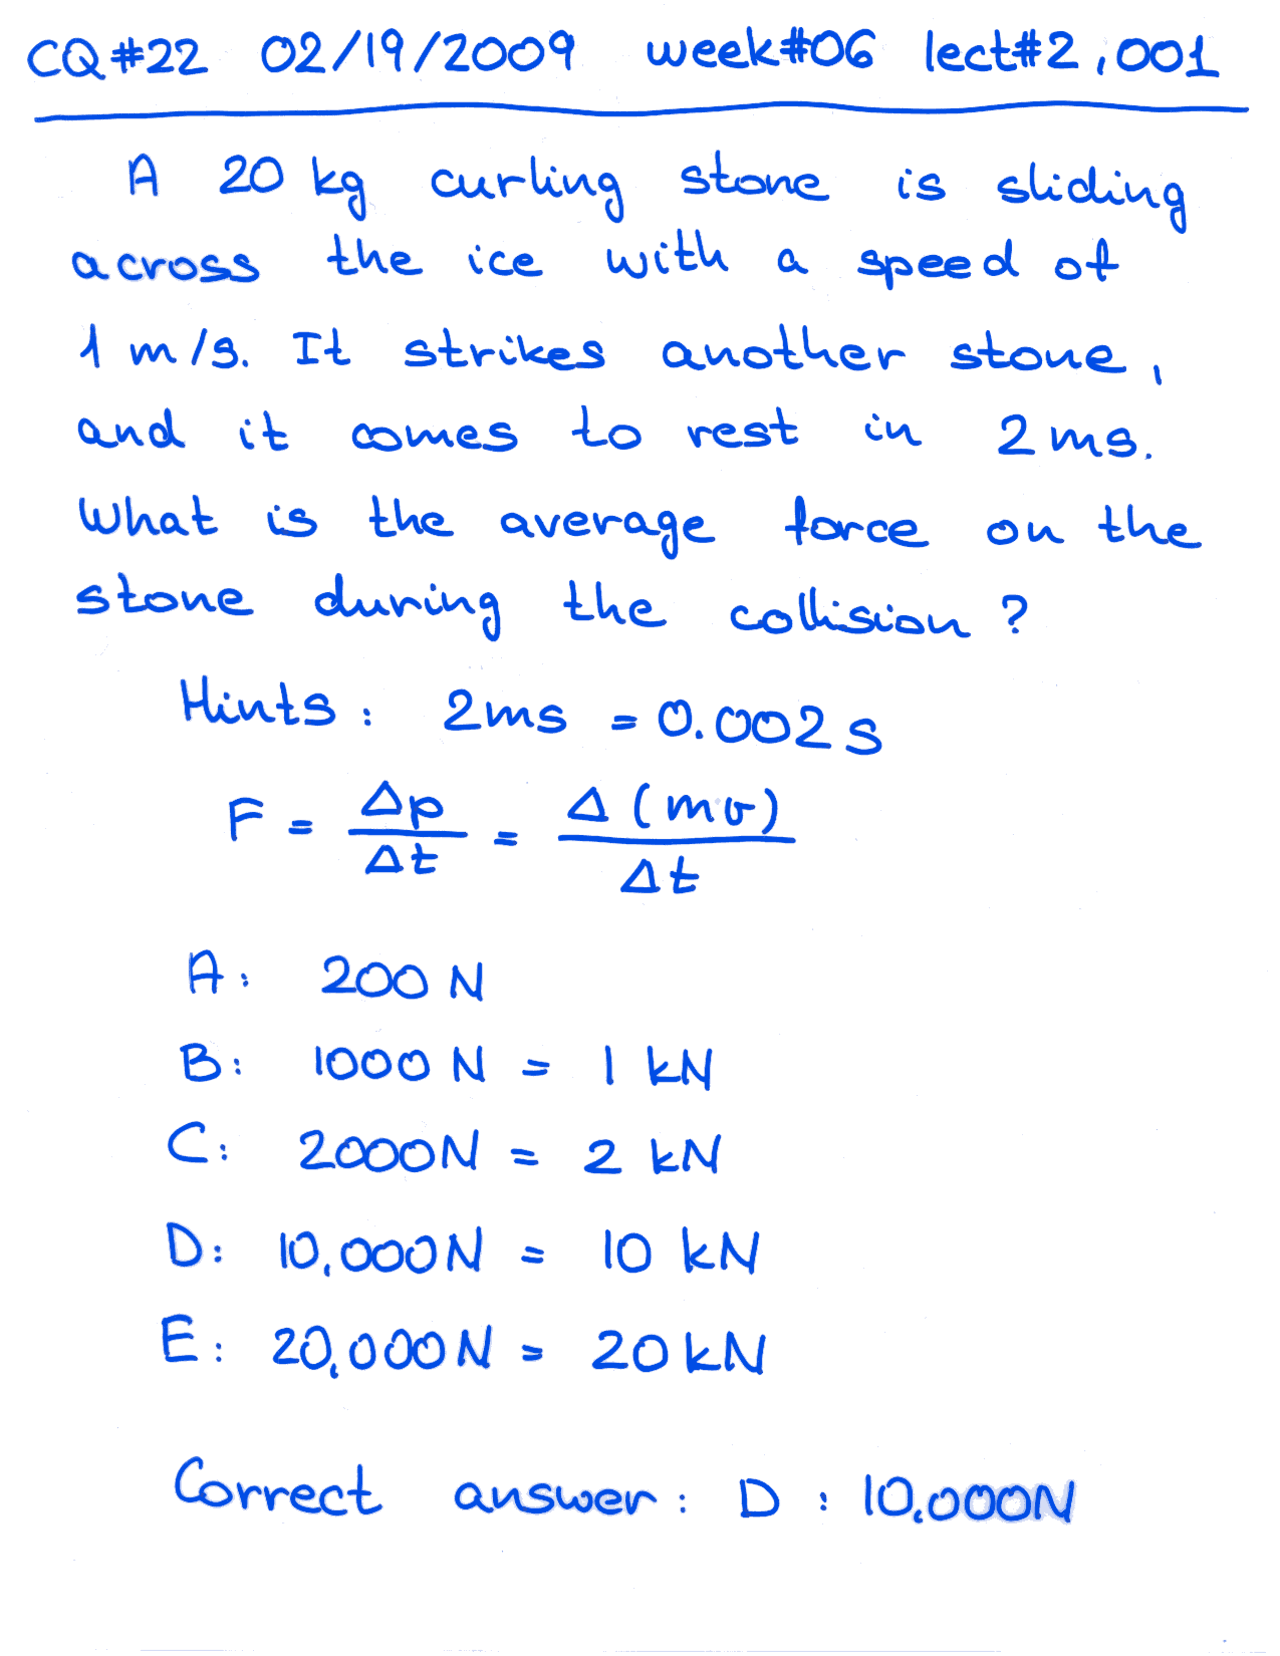 CQ#22 02/19/2009 week#06 lect#2,001
A 20 kg curling stone is sliding
across the ice with a speed of
1 m/s. It strikes another stone,
and it comes to rest in 2 ms.
What is the average force on the
stone during the collision?
Hints: 2ms = 0.002 s
F = Δp/Δt = Δ(mv)/Δt
A: 200 N
B: 1000 N = 1 kN
C: 2000N = 2 kN
D: 10,000N = 10 kN
E: 20,000N = 20 kN
Correct answer: D: 10,000N